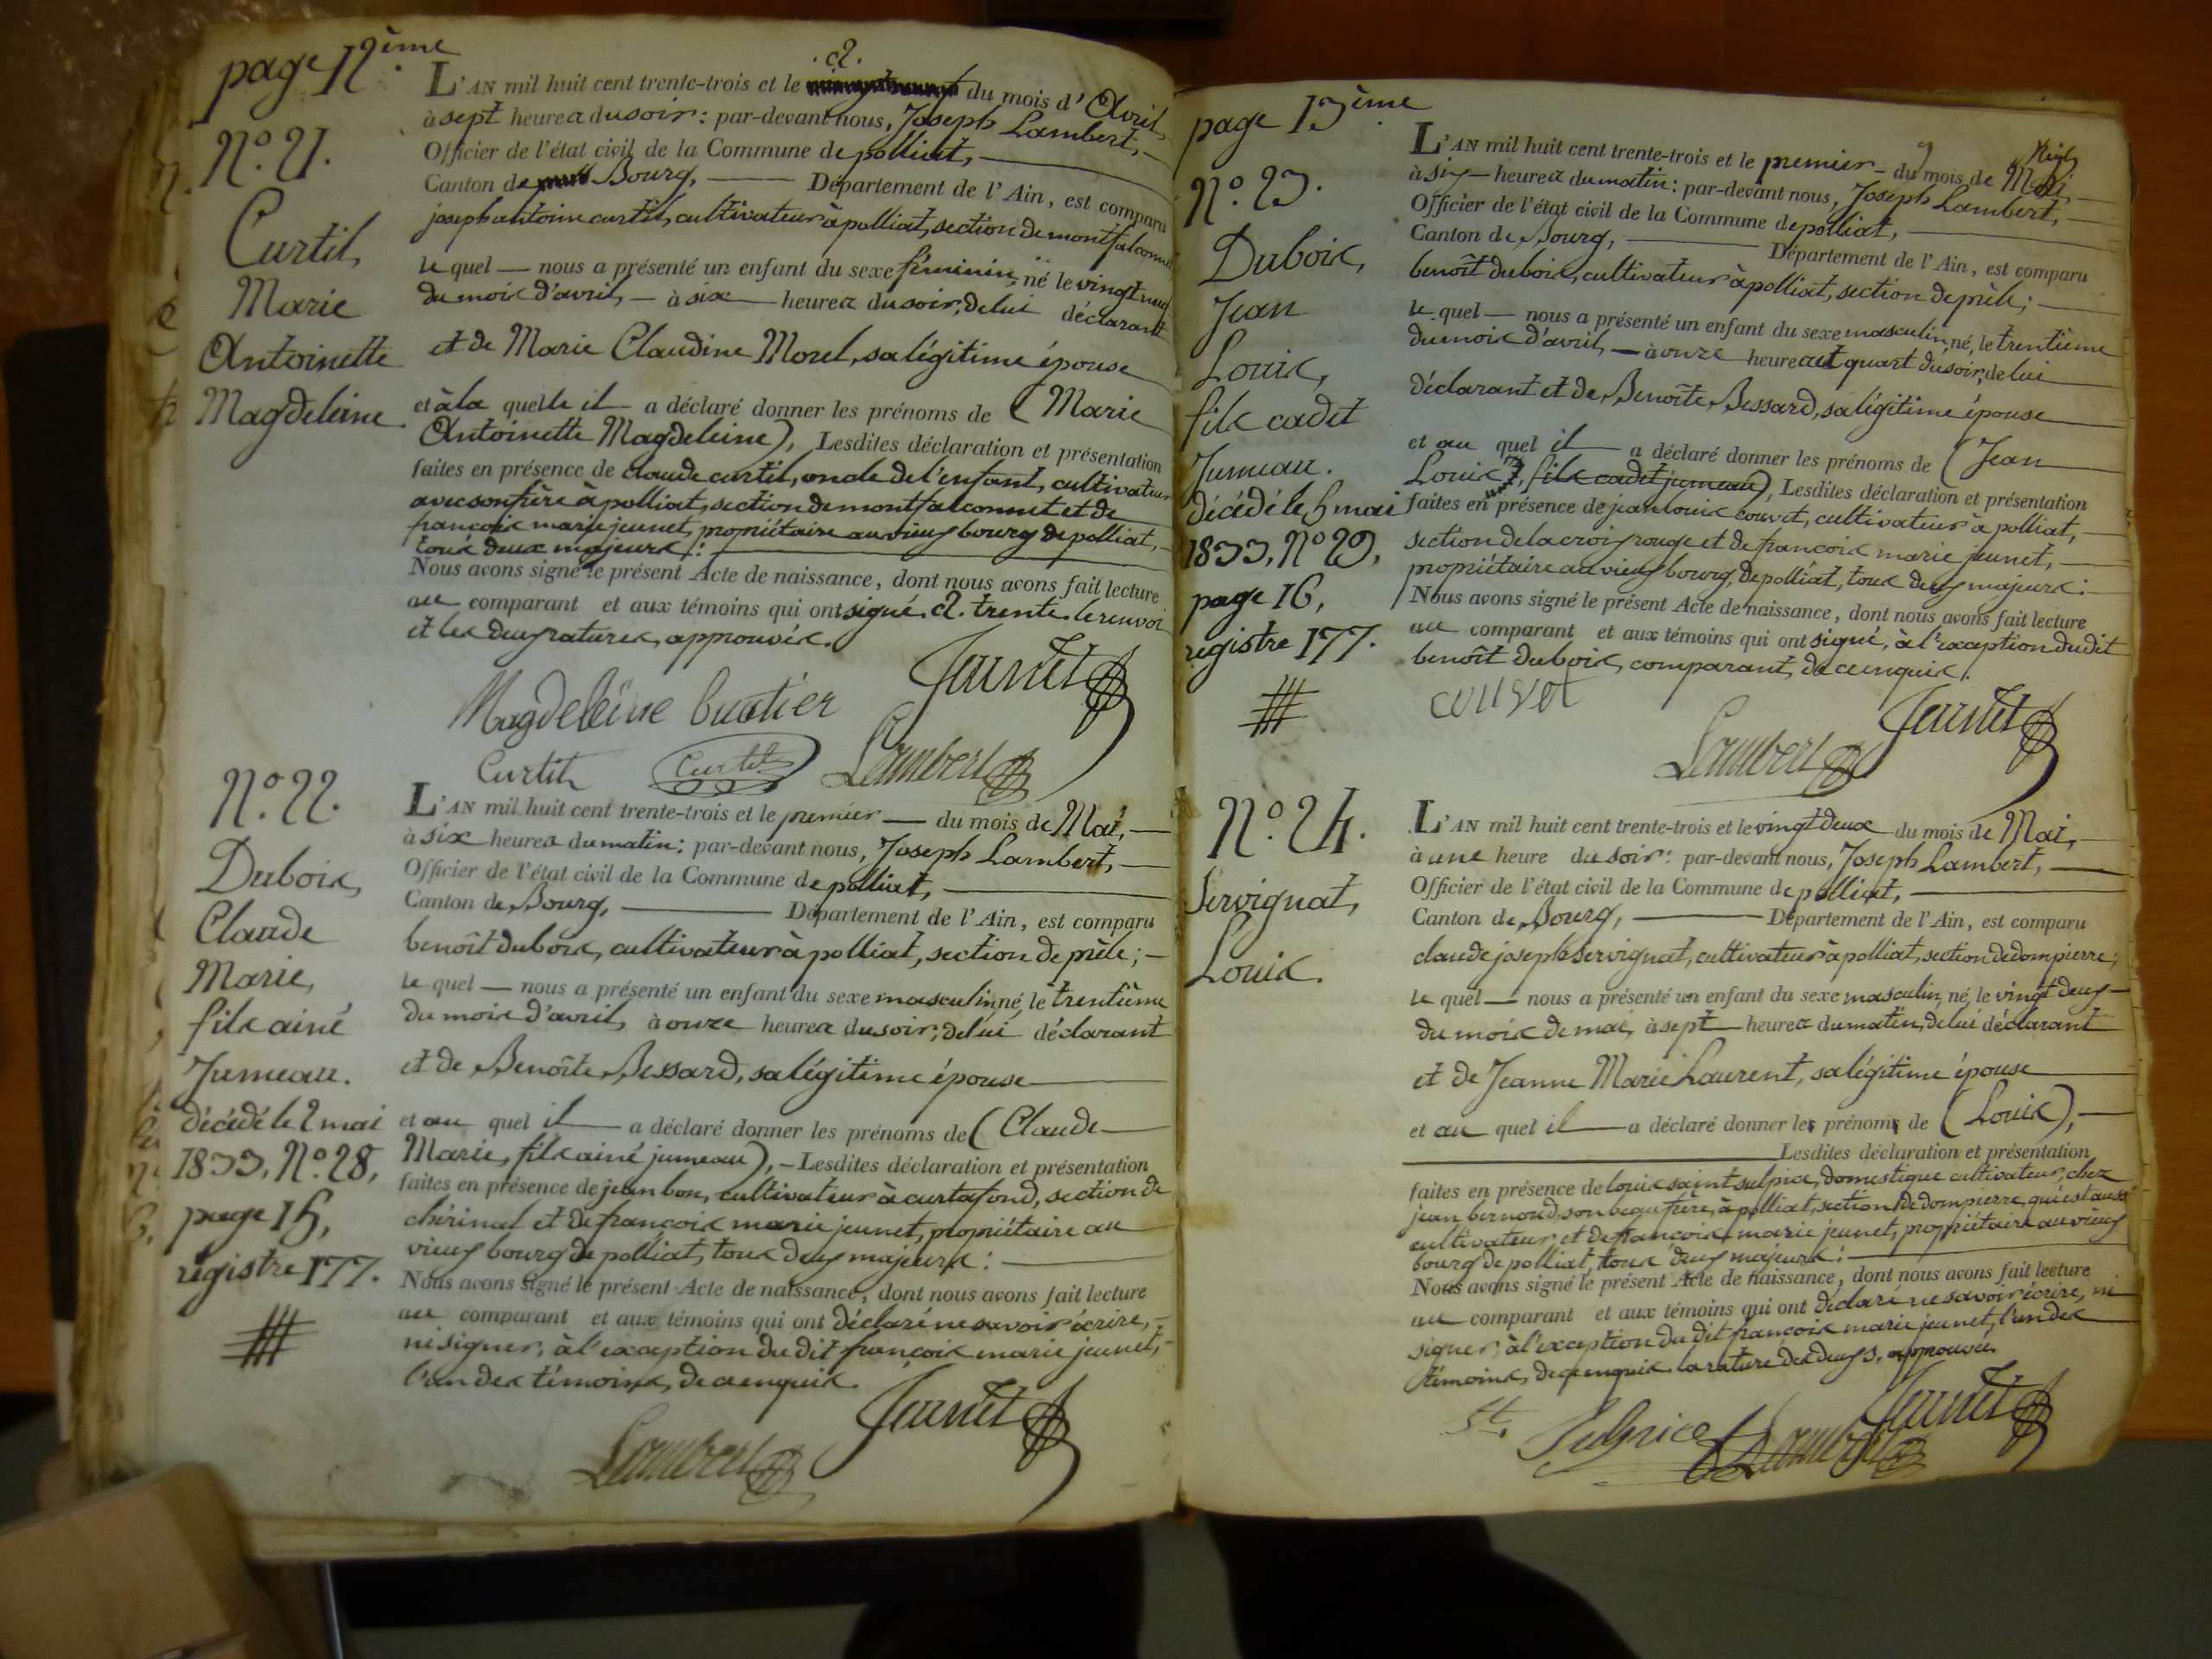 page 12.ème
N.º 21.
Curtil,
Marie
Antoinette
Magdeleine.
.a.
L'AN mil huit cent trente-trois et le du mois d' Avril,
à sept heures du soir : par-devant nous, Joseph Lambert,
Officier de l'état civil de la Commune de polliat,
Canton de Bourg, Département de l'Ain, est comparu
joseph antoine curtil, cultivateur à polliat, section de montfalconnet
le quel nous a présenté un enfant du sexe féminin, né le vingt neuf
du mois d'avril, à six heures du soir, de lui déclarant
et de Marie Claudine Morel, sa légitime épouse
et à la quelle il a déclaré donner les prénoms de (Marie
Antoinette Magdeleine), Lesdites déclaration et présentation
faites en présence de claude curtil, oncle de l'enfant, cultivateur
avec son frère à polliat, section de montfalconnet et de
françois marie jeunet, propriétaire au vieux bourg de polliat,
tous deux majeurs :
Nous avons signé le présent Acte de naissance, dont nous avons fait lecture
au comparant et aux témoins qui ont signé. a. trente. le renvoi
et les deux ratures, approuvés.
Jeunet
Magdeleine
Curtil Curtil Lambert
N.º 22.
Dubois,
Claude
Marie,
fils ainé
Jumeau.
décédé le 2 mai
1833, N.º 28,
page 15,
registre 177.
L'AN mil huit cent trente-trois et le premier du mois de Mai,
à six heures du matin : par-devant nous, Joseph Lambert,
Officier de l'état civil de la Commune de polliat,
Canton de Bourg, Département de l'Ain, est comparu
benoît dubois, cultivateur à polliat, section de prèle ;
le quel nous a présenté un enfant du sexe masculin, né, le trentième
du mois d'avril, à onze heures du soir, de lui déclarant
et de Benoîte Bessard, sa légitime épouse
et au quel il a déclaré donner les prénoms de (Claude
Marie, fils ainé jumeau), Lesdites déclaration et présentation
faites en présence de jean bon, cultivateur à curtafond, section de
chérinal et de françois marie jeunet, propriétaire au
vieux bourg de polliat, tous deux majeurs :
Nous avons signé le présent Acte de naissance, dont nous avons fait lecture
au comparant et aux témoins qui ont déclaré ne savoir écrire,
ni signer, à l'exception du dit françois marie jeunet,
l'un des témoins, de ce enquis.
Jeunet
Lambert
page 13ème
N.º 23.
Dubois,
Jean
Louis,
fils cadet
Jumeau.
décédé le 5 mai
1833, N.º 29,
page 16,
registre 177.
L'AN mil huit cent trente-trois et le premier du mois de Mai,
à six heures du matin : par-devant nous, Joseph Lambert,
Officier de l'état civil de la Commune de polliat,
Canton de Bourg, Département de l'Ain, est comparu
benoît dubois, cultivateur à polliat, section de prèle ;
le quel nous a présenté un enfant du sexe masculin, né, le trentième
du mois d'avril, à onze heures et quart du soir, de lui
déclarant et de Benoîte Bessard, sa légitime épouse
et au quel il a déclaré donner les prénoms de (Jean
Louis, fils cadet jumeau), Lesdites déclaration et présentation
faites en présence de jean louis couvet, cultivateur à polliat,
section de la croix rouge et de françois marie jeunet,
propriétaire au vieux bourg, de polliat, tous deux majeurs :
Nous avons signé le présent Acte de naissance, dont nous avons fait lecture
au comparant et aux témoins qui ont signé, à l'exception du dit
benoît dubois, comparant, de ce enquis.
couvet
Jeunet
Lambert
N.º 24.
Servignat,
Louis.
L'AN mil huit cent trente-trois et le vingt deux du mois de Mai,
à une heure du soir : par-devant nous, Joseph Lambert,
Officier de l'état civil de la Commune de polliat,
Canton de Bourg, Département de l'Ain, est comparu
claude joseph servignat, cultivateur à polliat, section de dompierre ;
le quel nous a présenté un enfant du sexe masculin, né, le vingt deux
du mois de mai, à sept heures du matin, de lui déclarant
et de Jeanne Marie Laurent, sa légitime épouse
et au quel il a déclaré donner les prénoms de (Louis),
Lesdites déclaration et présentation
faites en présence de louis saint sulpice, domestique cultivateur, chez
jean bernoud, son beau frère, à polliat, section de dompierre, qui est aussi
cultivateur, et de françois marie jeunet, propriétaire au vieux
bourg de polliat, tous deux majeurs :
Nous avons signé le présent Acte de naissance, dont nous avons fait lecture
au comparant et aux témoins qui ont déclaré ne savoir écrire, ni
signer, à l'exception du dit françois marie jeunet, l'un des
témoins, de ce enquis. la rature des deux s, approuvée.
St. Sulpice Jeunet
Lambert